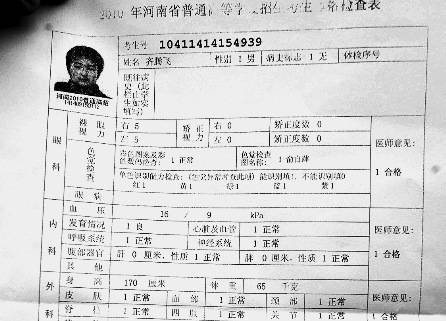 2010 年河南省普通高等学校招生考生体格检查表
考生号 10411414154939
姓名 齐腾飞 性别 1 男 病史标志 1 无 体检序号
既往病史(此栏由学生如实填写)
河南2010普通高招
眼科
裸眼视力 右 5 矫正视力 右 0 矫正度数 0 医师意见:
左 5 左 0 矫正度数 0
色觉检查 彩色图案及彩色数码检查: 1 正常 色觉检查图名称: 1 俞自萍 1 合格
红1 黄1 绿1 蓝1 紫1
眼病
内科
血压 16 / 9 kPa 医师意见:
发育情况 1 良 心脏及血管 1 正常
呼吸系统 1 正常 神经系统 1 正常
腹部器官 肝 0 厘米, 性质 1 正常 脾 0 厘米, 性质 1 正常 1 合格
其他
外
身高 170 厘米 体重 65 千克 医师意见:
皮肤 1 正常 面部 1 正常 颈部 1 正常
脊柱 1 正常 四肢 1 正常 关节 1 正常 1 合格